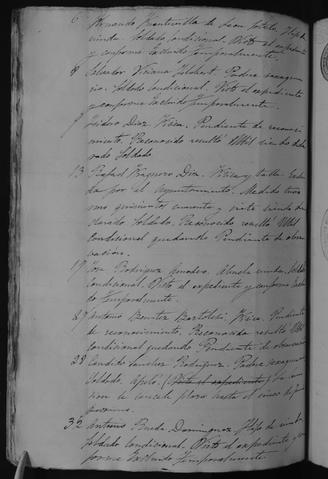 6 Fernando Bontunilla de Juan Hijo de
viuda Soldado Condicional. Visto el expediente
y conforme Excluido Temporalmente.
8 Salvador Viciana Gilabert. Padre sexagena-
rio. Soldado Condicional. Visto el expediente
y conforme Excluido Temporalmente.
9 Isidro Diaz. Física. Pendiente de reconoci-
miento. Reconocido resultó Util siendo decla-
rado Soldado
13 Rafael Diaz. Física y talla.
por el Ayuntamiento. Medido tuvo
uno quinientos cuarenta y siete siendo de-
clarado Soldado. Reconocido resultó Util
Condicional quedando Pendiente de obser-
vacion.
19 Jose Rodriguez Abuela viuda. Soldado
Condicional. Visto el expediente y conforme
Temporalmente.
27 Antonio Benitez Física. Pendiente
de reconocimiento. Reconocido resultó Util
Condicional quedando Pendiente de observacion
28 Candido Sanchez Rodriguez. Padre sexagenario
Soldado. Apeló. (Visto el expediente) La comi-
sion le concede plazo hasta el
proximo.
32 Antonio Rueda Dominguez, Hijo de viuda
Soldado Condicional. Visto el expediente y con-
forme Excluido Temporalmente.